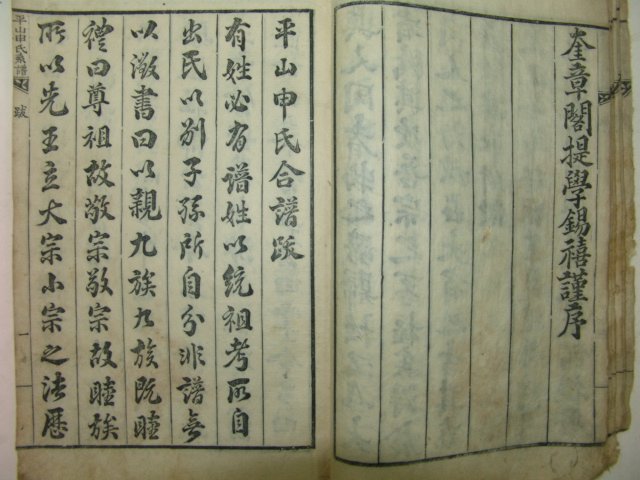 奎章閣提學錫禧謹序
平山申氏合譜跋
有姓必有譜姓以統祖考所自
出氏以別子孫所自分非譜無
以徵書曰以親九族九族既睦
禮曰尊祖故敬宗敬宗故睦族
所以先王立大宗小宗之法歷
平山申氏系譜
跋
一